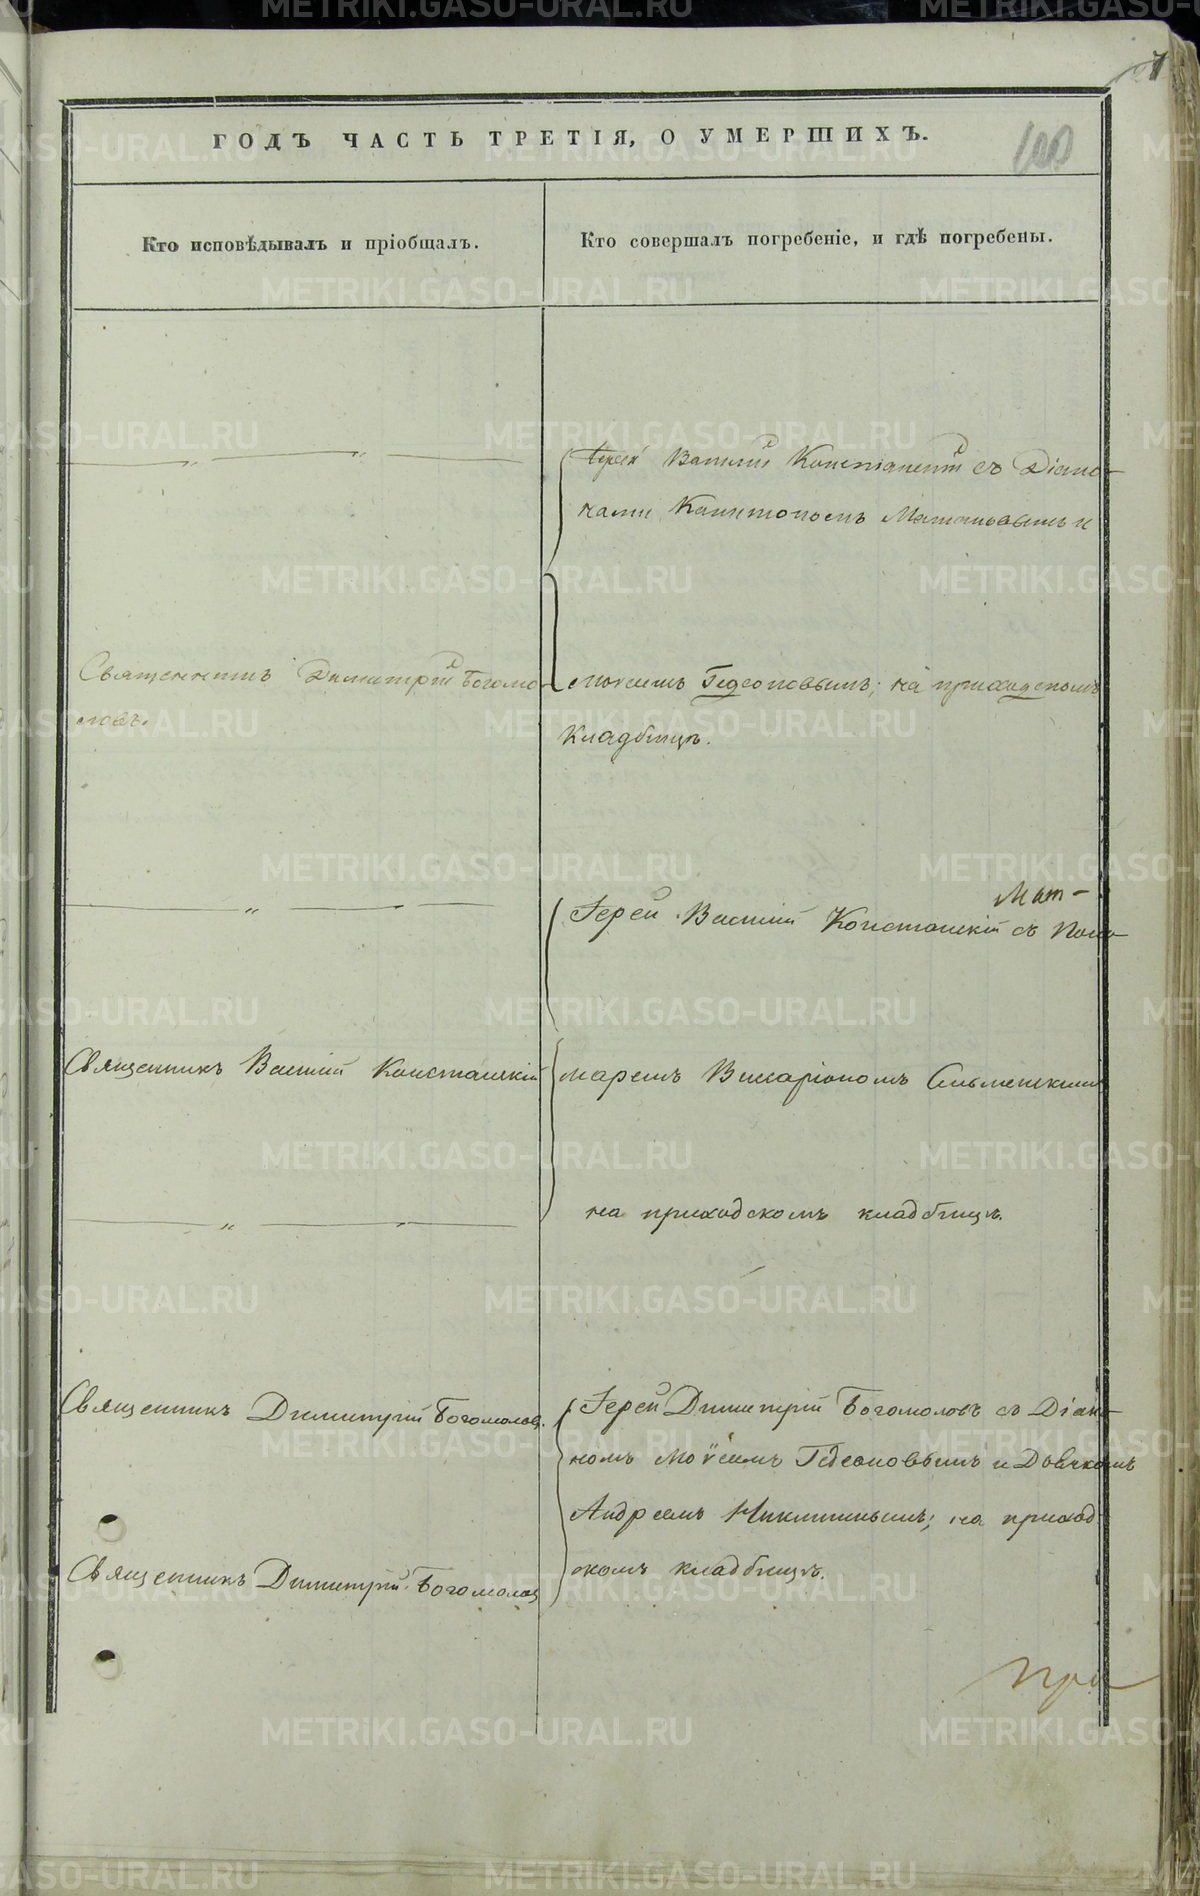 100
ГОДЪ ЧАСТЬ ТРЕТІЯ, О УМЕРШИХЪ.
Кто исповѣдывалъ и пріобщалъ.
Кто совершалъ погребеніе, и гдѣ погребены.
Іерей Василій Констанскій съ Діако-
нами Капитономъ и
Священникъ Димитрій Богомо-
ловъ.
Моѵсеемъ Гедеоновымъ; на приходскомъ
кладбищѣ.
Іерей Василій Констанскій съ Поно-
Священникъ Василій Констанскій
маремъ Виссаріономъ Сильменскимъ
на приходскомъ кладбищѣ.
Священникъ Димитрій Богомоловъ.
Іерей Димитрій Богомоловъ съ Діако-
номъ Моѵсеемъ Гедеоновымъ и Дьячкомъ
Андреемъ Никитинымъ; на приход-
скомъ кладбищѣ.
Священникъ Димитрій Богомоловъ
При
METRIKI.GASO-URAL.RU